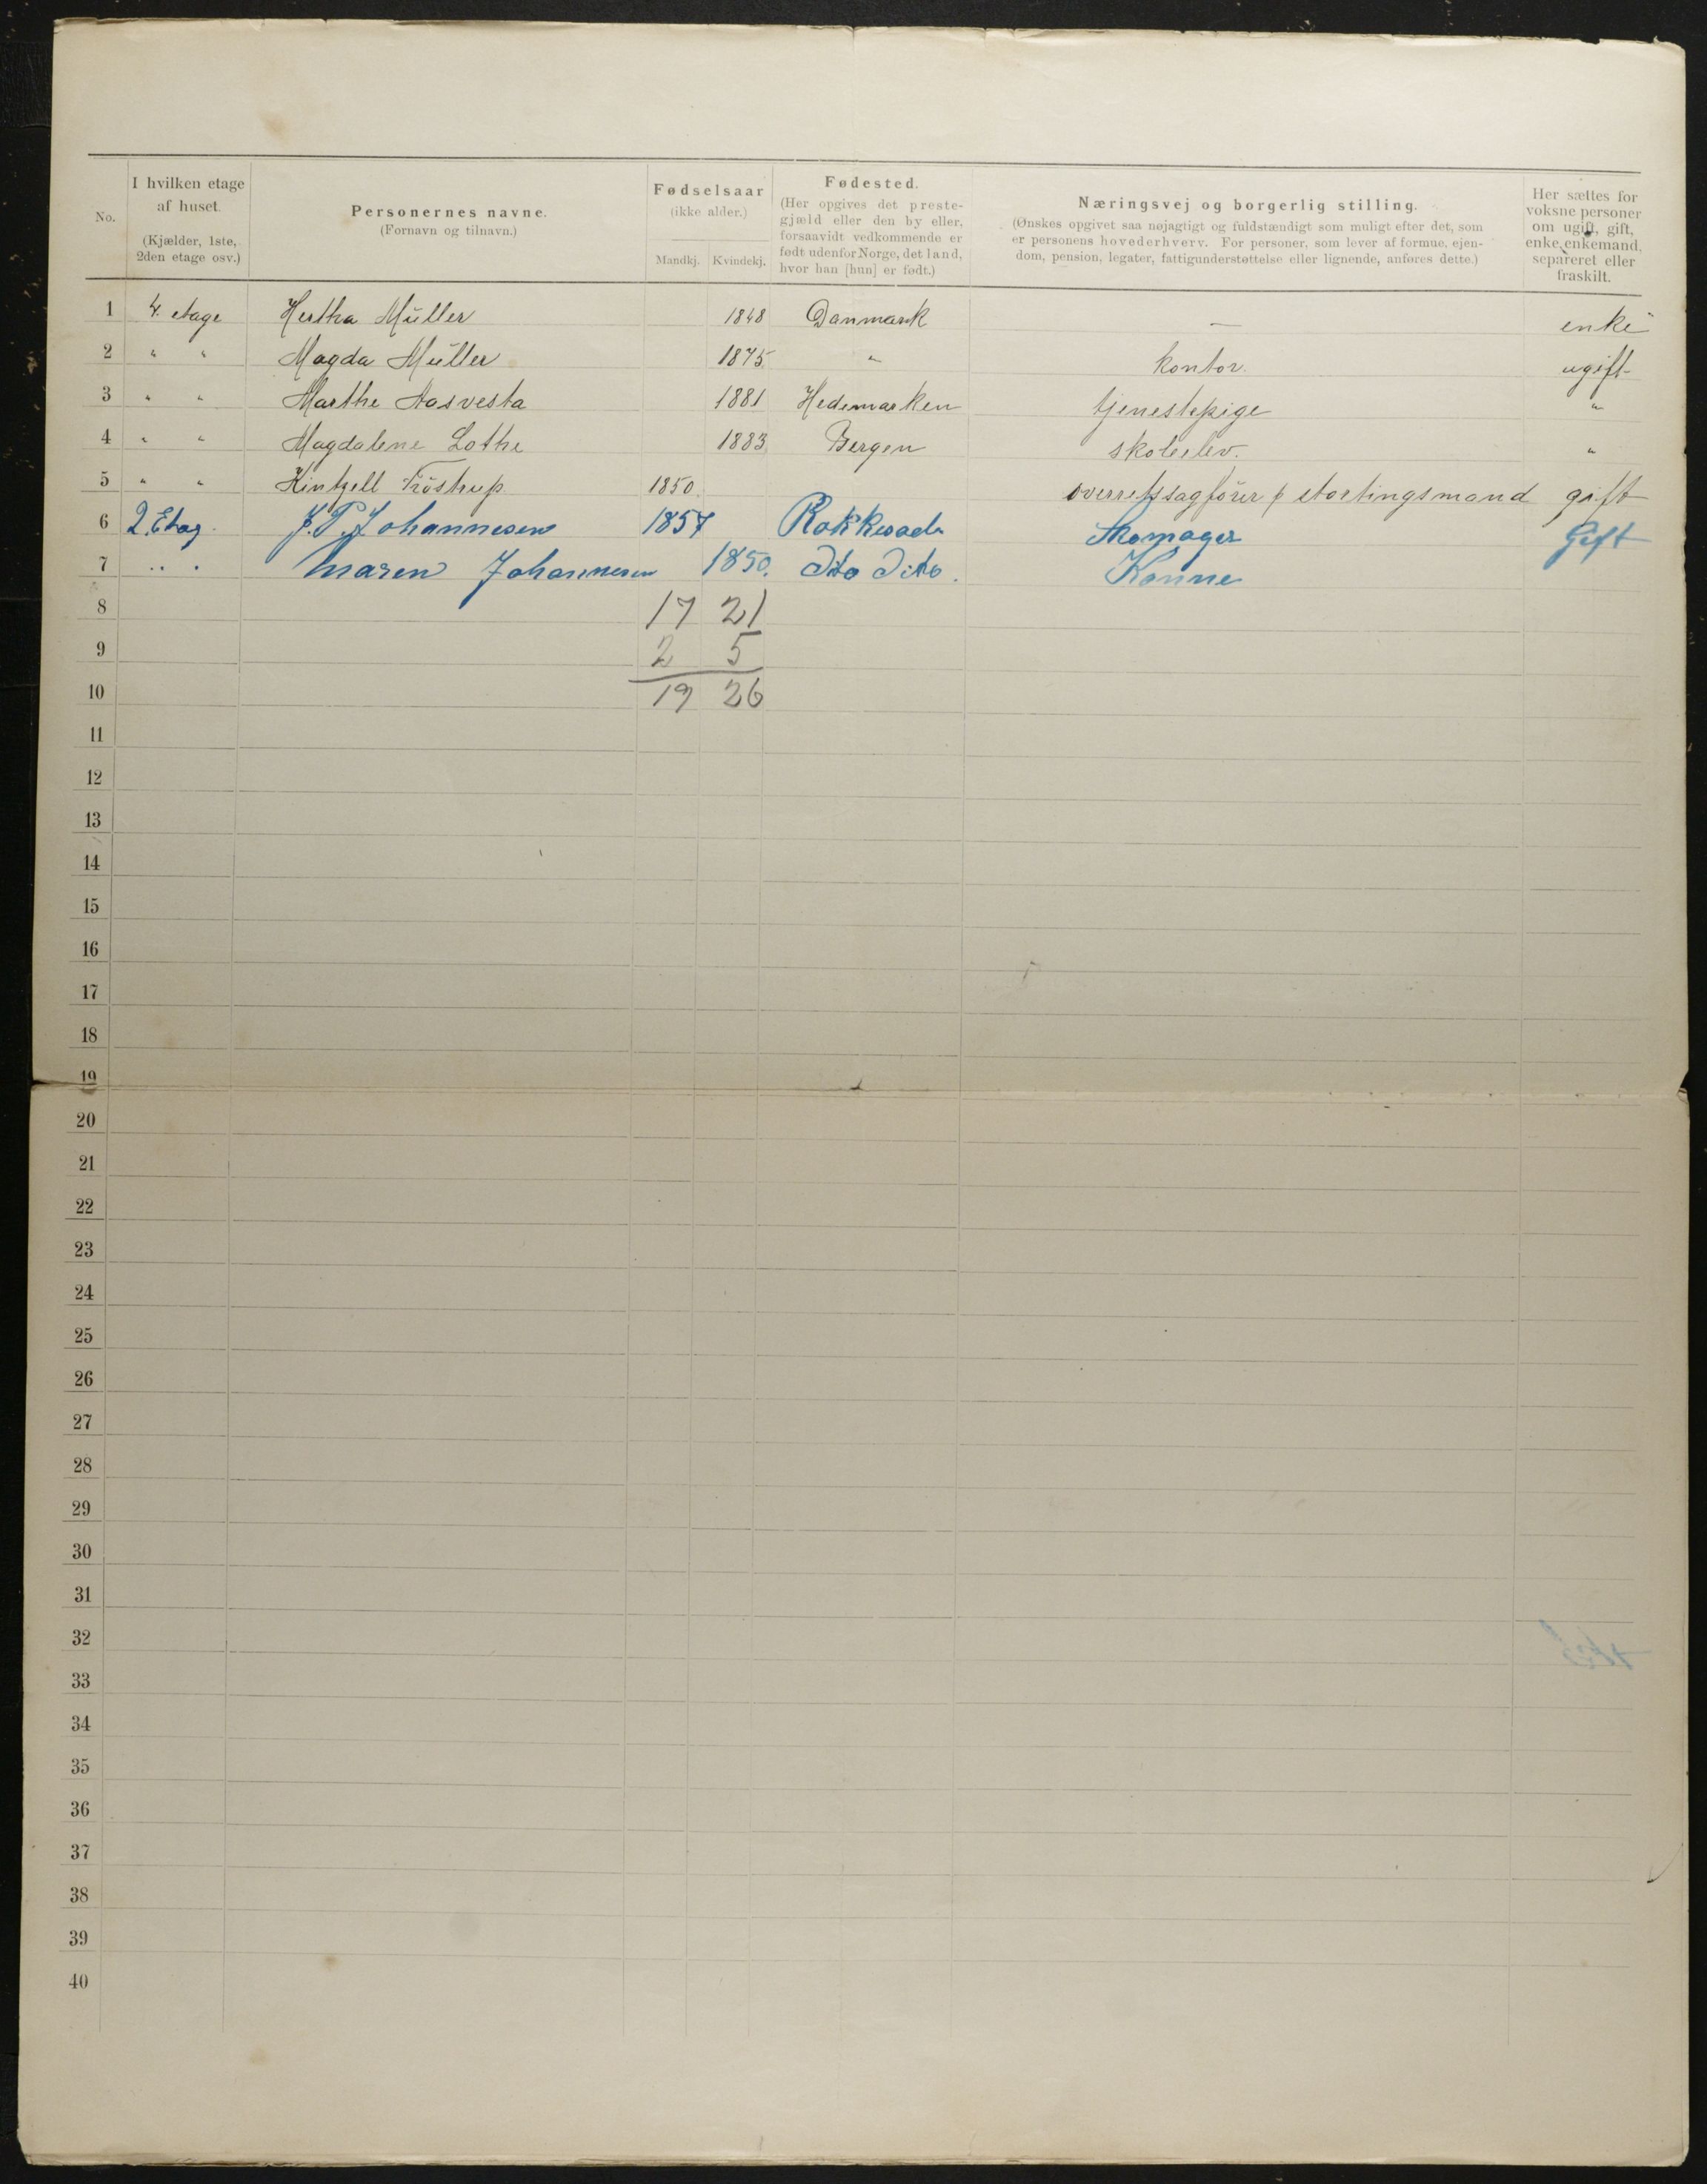 No.
I hvilken etage af huset.
(Kjælder, 1ste, 2den etage osv.)
Personernes navne.
(Fornavn og tilnavn.)
Fødselsaar
(ikke alder.)
Mandkj. Kvindekj.
Fødested.
(Her opgives det prestegjæld eller den by eller, forsaavidt vedkommende er født udenfor Norge, det land, hvor han [hun] er født.)
Næringsvej og borgerlig stilling.
(Ønskes opgivet saa nøjagtigt og fuldstændigt som muligt efter det, som er personens hovederhverv. For personer, som lever af formue, ejendom, pension, legater, fattigunderstøttelse eller lignende, anføres dette.)
Her sættes for voksne personer om ugift, gift, enke, enkemand, separeret eller fraskilt.
1 4. etage Hertha Müller 1848 Danmark — enke
2 " " Magda Müller 1875 " kontor. ugift
3 " " Marthe Aasvesta 1881 Hedemarken tjenestepige "
4 " " Magdalene Lothe 1883 Bergen skoleelev. "
5 " " Kintzell Fröstrup 1850 overretssagfører stortingsmand gift
6 2. Etag. J. P. Johannesen 1857 Rakkesad Skomager Gift
7 " " Maren Johannesen 1850. Dito Dito. Konne
8 17 21
9 2 5
10 19 26
11
12
13
14
15
16
17
18
19
20
21
22
23
24
25
26
27
28
29
30
31
32
33
34
35
36
37
38
39
40